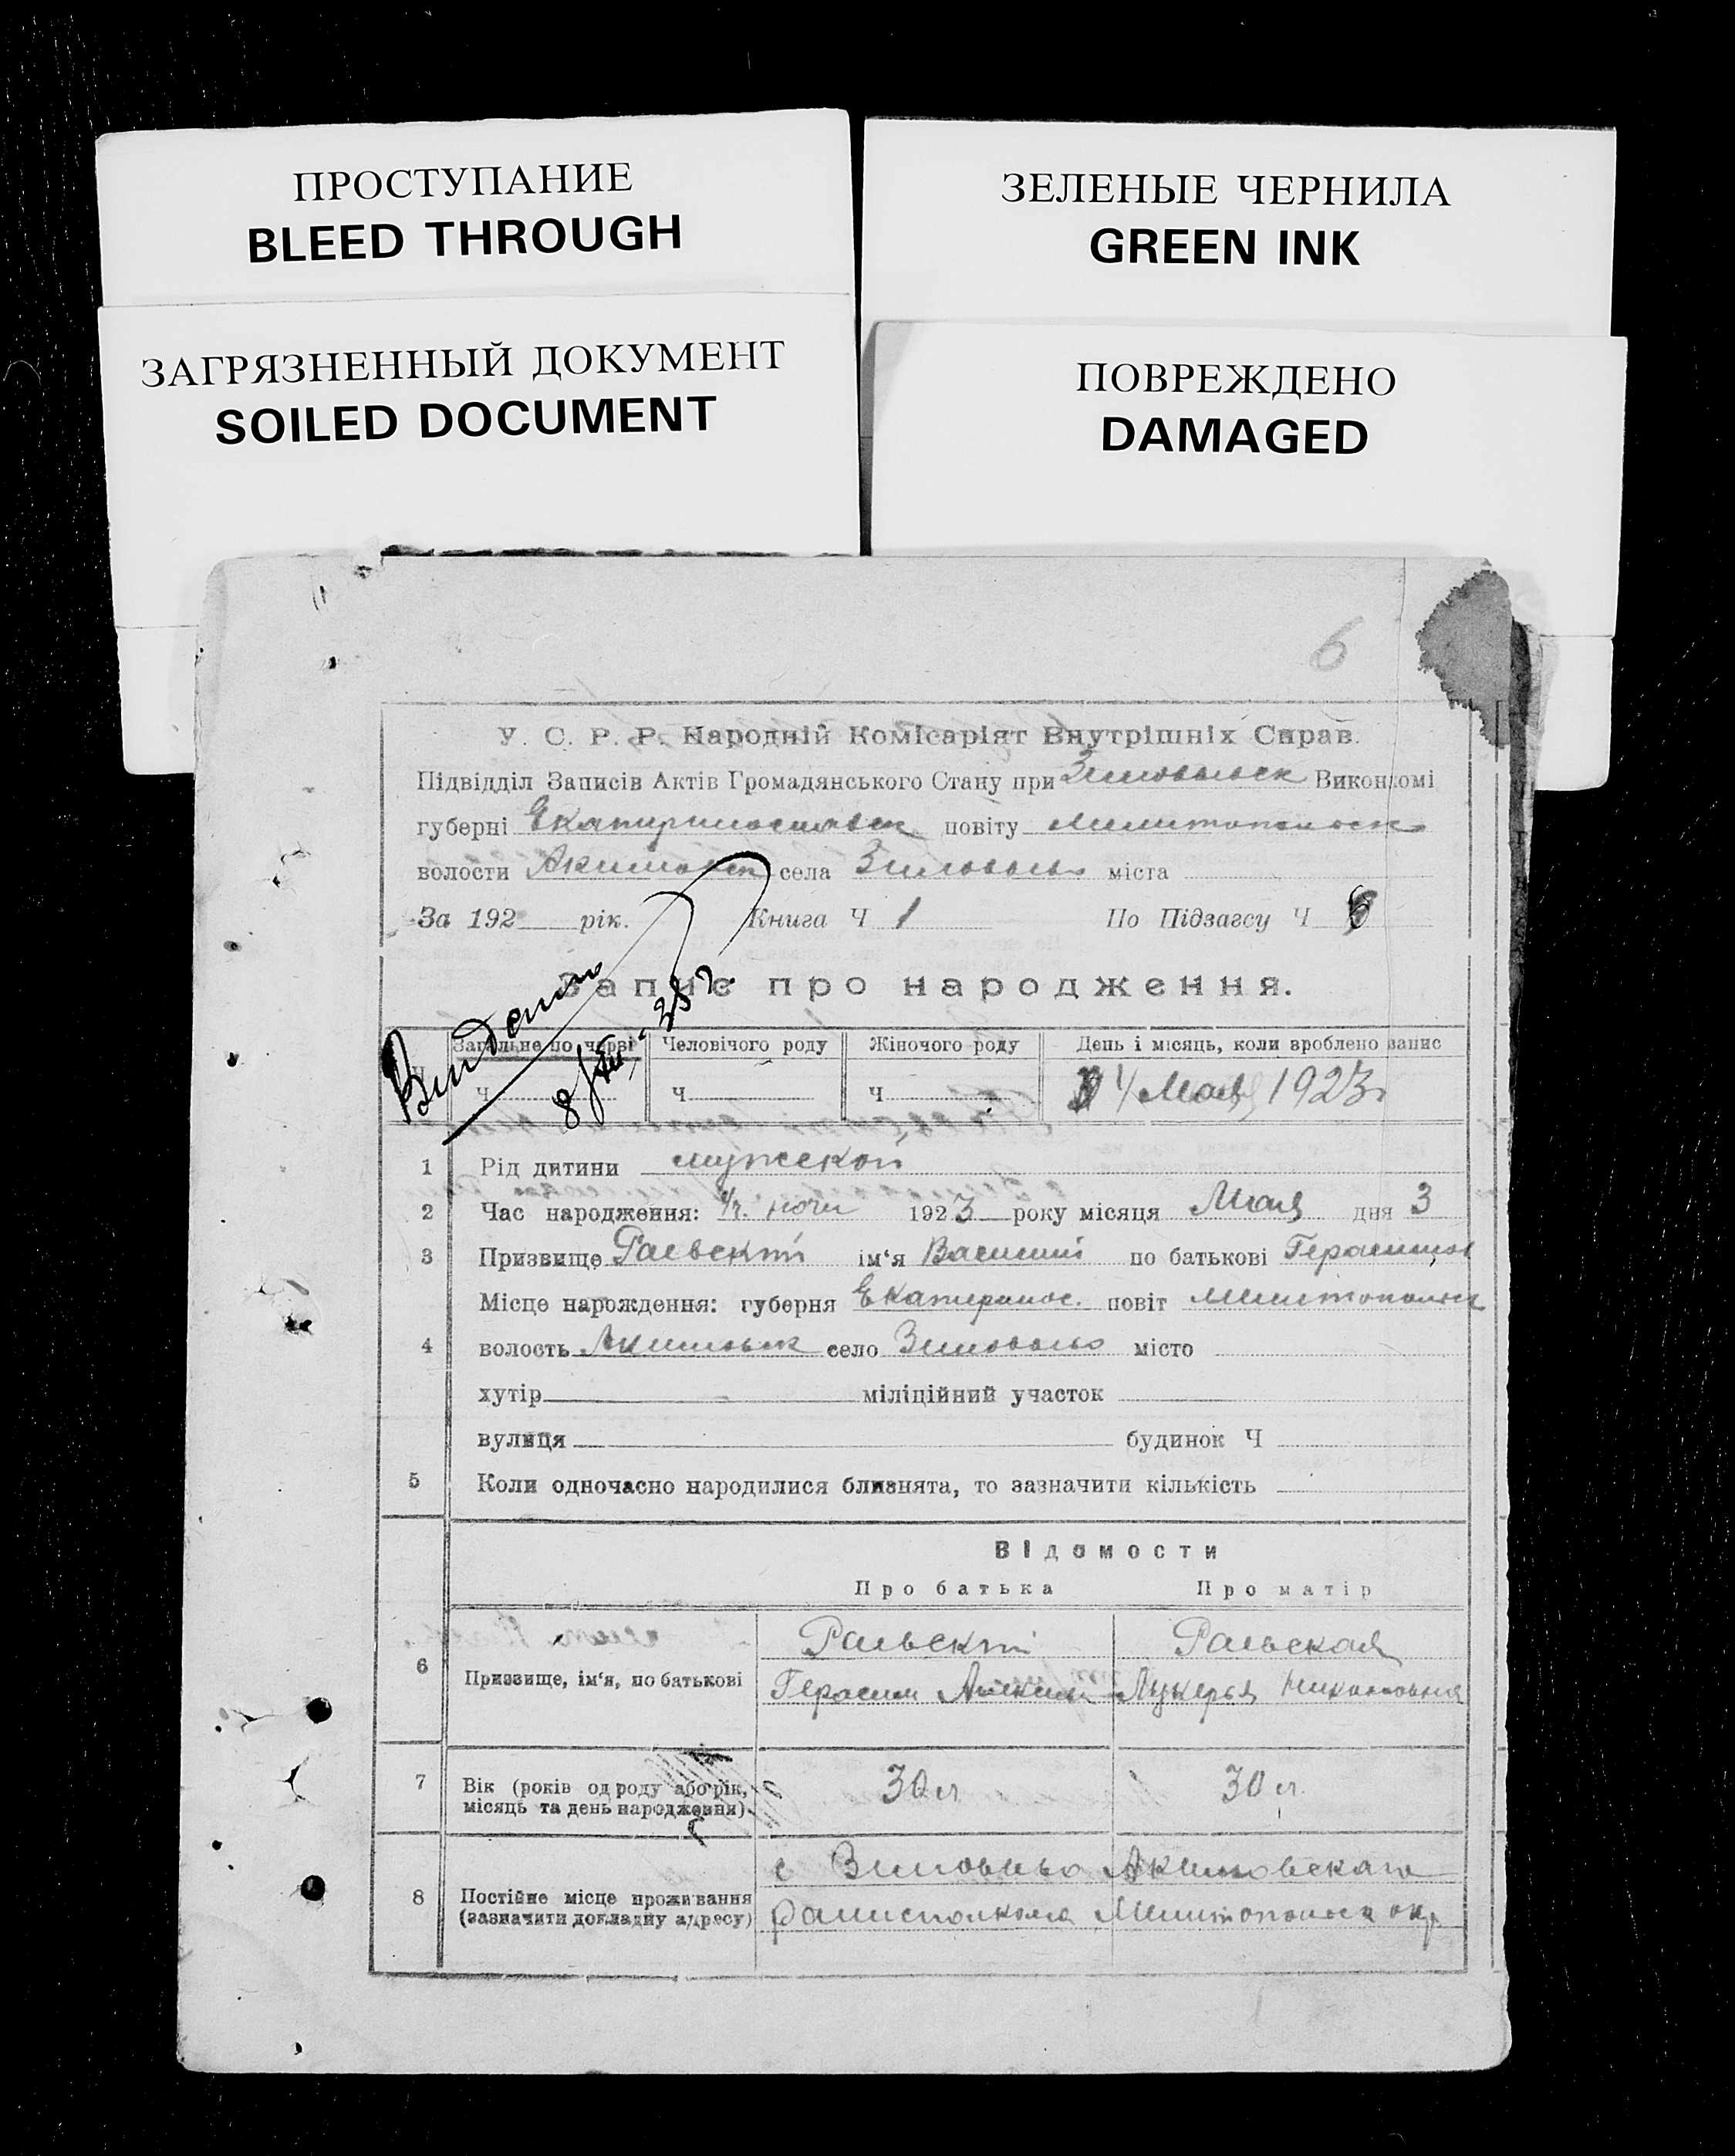 ПРОСТУПАНИЕ
BLEED THROUGH
ЗЕЛЕНЫЕ ЧЕРНИЛА
GREEN INK
ЗАГРЯЗНЕННЫЙ ДОКУМЕНТ
SOILED DOCUMENT
ПОВРЕЖДЕНО
DAMAGED
6
У. С. Р. Р. Народній Комісаріят Внутрішніх Справ.
Підвідділ Записів Актів Громадянського Стану при Виконкомі
губерні Екатеринославск повіту Мелитопольск
волости Акимовск села міста
За 192 рік. Книга Ч 1 По Підзагсу Ч 6
Запис про народження.
Загальне по черві Человічого роду Жіночого роду День і місяць, коли вроблено запис
Ч Ч Ч 4 Мая 1923
1 Рід дитини мужеской
2 Час народження: ночи 1923 року місяця Мая дня 3
3 Призвище Раевский ім‘я Василий по батькові Герасимов
Місце нарождення: губерня Екатеринос. повіт Мелитопольск
4 волость Акимовск село місто
хутір міліційний участок
вулиця будинок Ч
5 Коли одночасно народилися близнята, то зазначити кількість
Відомости
Про батька Про матір
6 Призвище, ім‘я, по батькові
Раевский Раевская
Герасим Лукерья
7 Вік (років од роду або рік, місяць та день народження)
30 л 30 л
8 Постійне місце проживання (зазначити докладну адресу)
с Акимовскаго
Райисполкома Мелитопольск окр.